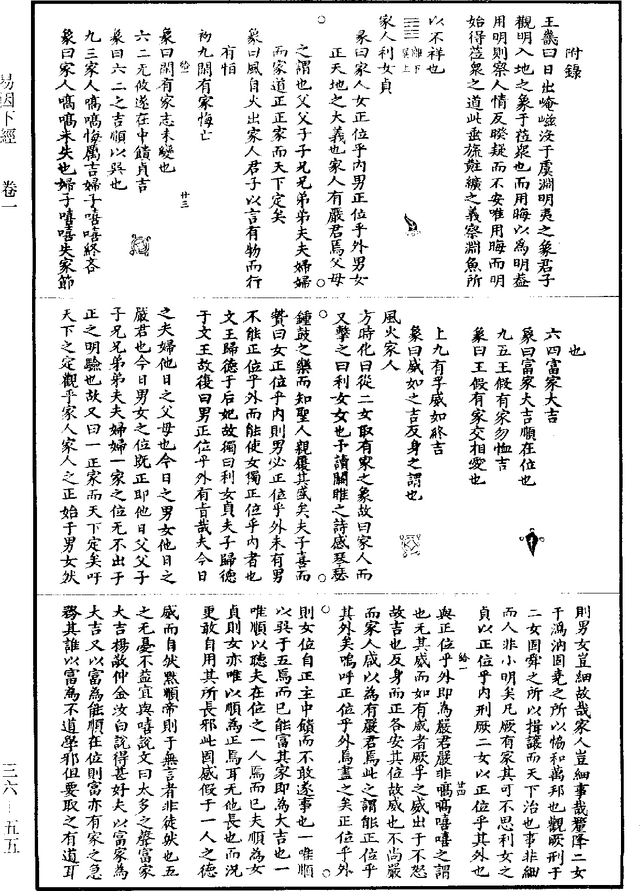 附錄
王畿曰日出崦嵫沒于虞淵明夷之象君子
觀明入地之象于莅衆也而用晦以為明蓋
用明則察人情反睽疑而不安唯用晦而明
始得莅衆之道此垂旒黈纊之義察淵魚所
以不祥也
離下
巽上
家人利女貞
彖曰家人女正位乎內男正位乎外男女
正天地之大義也家人有嚴君焉父母
之謂也父父子子兄兄弟弟夫夫婦婦
而家道正正家而天下定矣
象曰風自火出家人君子以言有物而行
有恒
初九閑有家悔亡
象曰閑有家志未變也
給一 廿三
六二无攸遂在中饋貞吉
象曰六二之吉順以巽也
九三家人嗃嗃悔厲吉婦子嘻嘻終吝
象曰家人嗃嗃未失也婦子嘻嘻失家節
也
六四富家大吉
象曰富家大吉順在位也
九五王假有家勿恤吉
象曰王假有家交相愛也
上九有孚威如終吉
象曰威如之吉反身之謂也
風火家人
方時化曰從二女取有家之象故曰家人而
又擊之曰利女女也予讀關雎之詩感琴瑟
鍾鼓之樂而知聖人親屢其盛矣夫子喜而
贊曰女正位乎內則男必正位乎外未有男
不能正位乎外而能使女獨正位乎內者也
文王歸德于后妃故獨曰利女貞夫子歸德
于文王故復曰男正位乎外有旨哉夫今日
之夫婦他日之父母也今日之男女他日之
嚴君也今日男女之位既正即他日父父子
子兄兄弟弟夫夫婦婦一家之位无不出于
正之明驗也故又曰一正家而天下定矣吁
天下之定觀乎家人家人之正始于男女然
則男女豈細故哉家人豈細事哉釐降二女
于溈汭固堯之所以協和萬邦也觀厥刑于
二女固舜之所以揖讓而天下治也事非細
而人非小明矣凡厥有家其可不思利女之
貞以正位乎內刑厥二女以正位乎其外也
給一 廿四
與正位乎外即為嚴君嚴非嗃嗃嘻嘻之謂
也无其威而如有威者厥孚之威出于不怒
故吉也反身而正各安其位故威也不尚嚴
而家人咸以為有嚴君焉此之謂能正位乎
其外矣嗚呼正位乎外焉盡之矣正位乎外
則女位自正主中饋而不敢遂事也一唯順
以巽于五焉而已能富其家即為大吉也一
唯順以聽夫在位之一人焉而已夫順為女
貞則女亦唯以順為正焉耳无他長也而況
更敢自用其所長邪此固感假于一人之德
威而自然默順帝則于無言者非徒然也五
之无憂不益宜與嘻說文曰太多之聲富家
大吉楊敬仲金汝白說得甚好夫以富家為
大吉又以富為能順在位則富亦有家之急
務其誰以富為不道學邪但要取之有道耳
易因下經 卷一
三六—五五